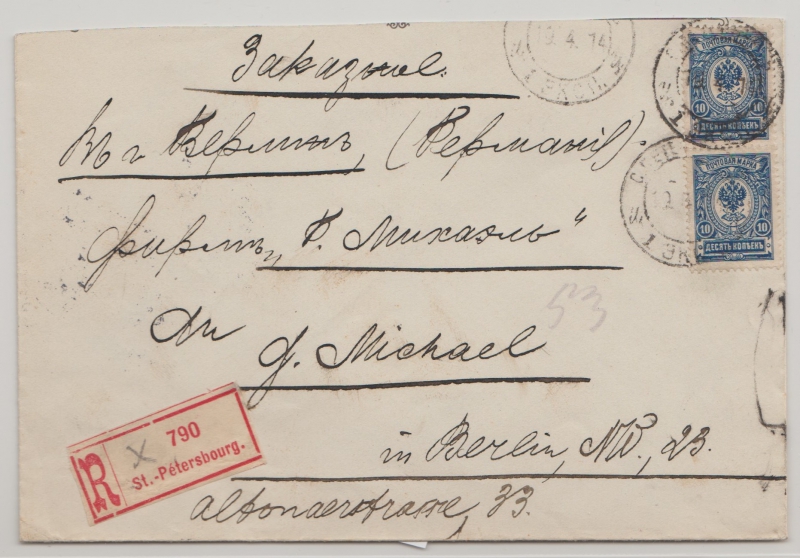 Заказное.
19.4.14
1 ЭКСП.
ПОЧТОВАЯ МАРКА
10 10
ДЕСЯТЬ КОПѢЕКЪ
Въ г. Берлинъ, (Германія).
ПОЧТОВАЯ МАРКА
10 10
ДЕСЯТЬ КОПѢЕКЪ
фирмѣ „Г. Михаэль“
53
An G. Michael
R 790
St.-Pétersbourg.
in Berlin, NW, 23.
Altonaerstrasse, 33.